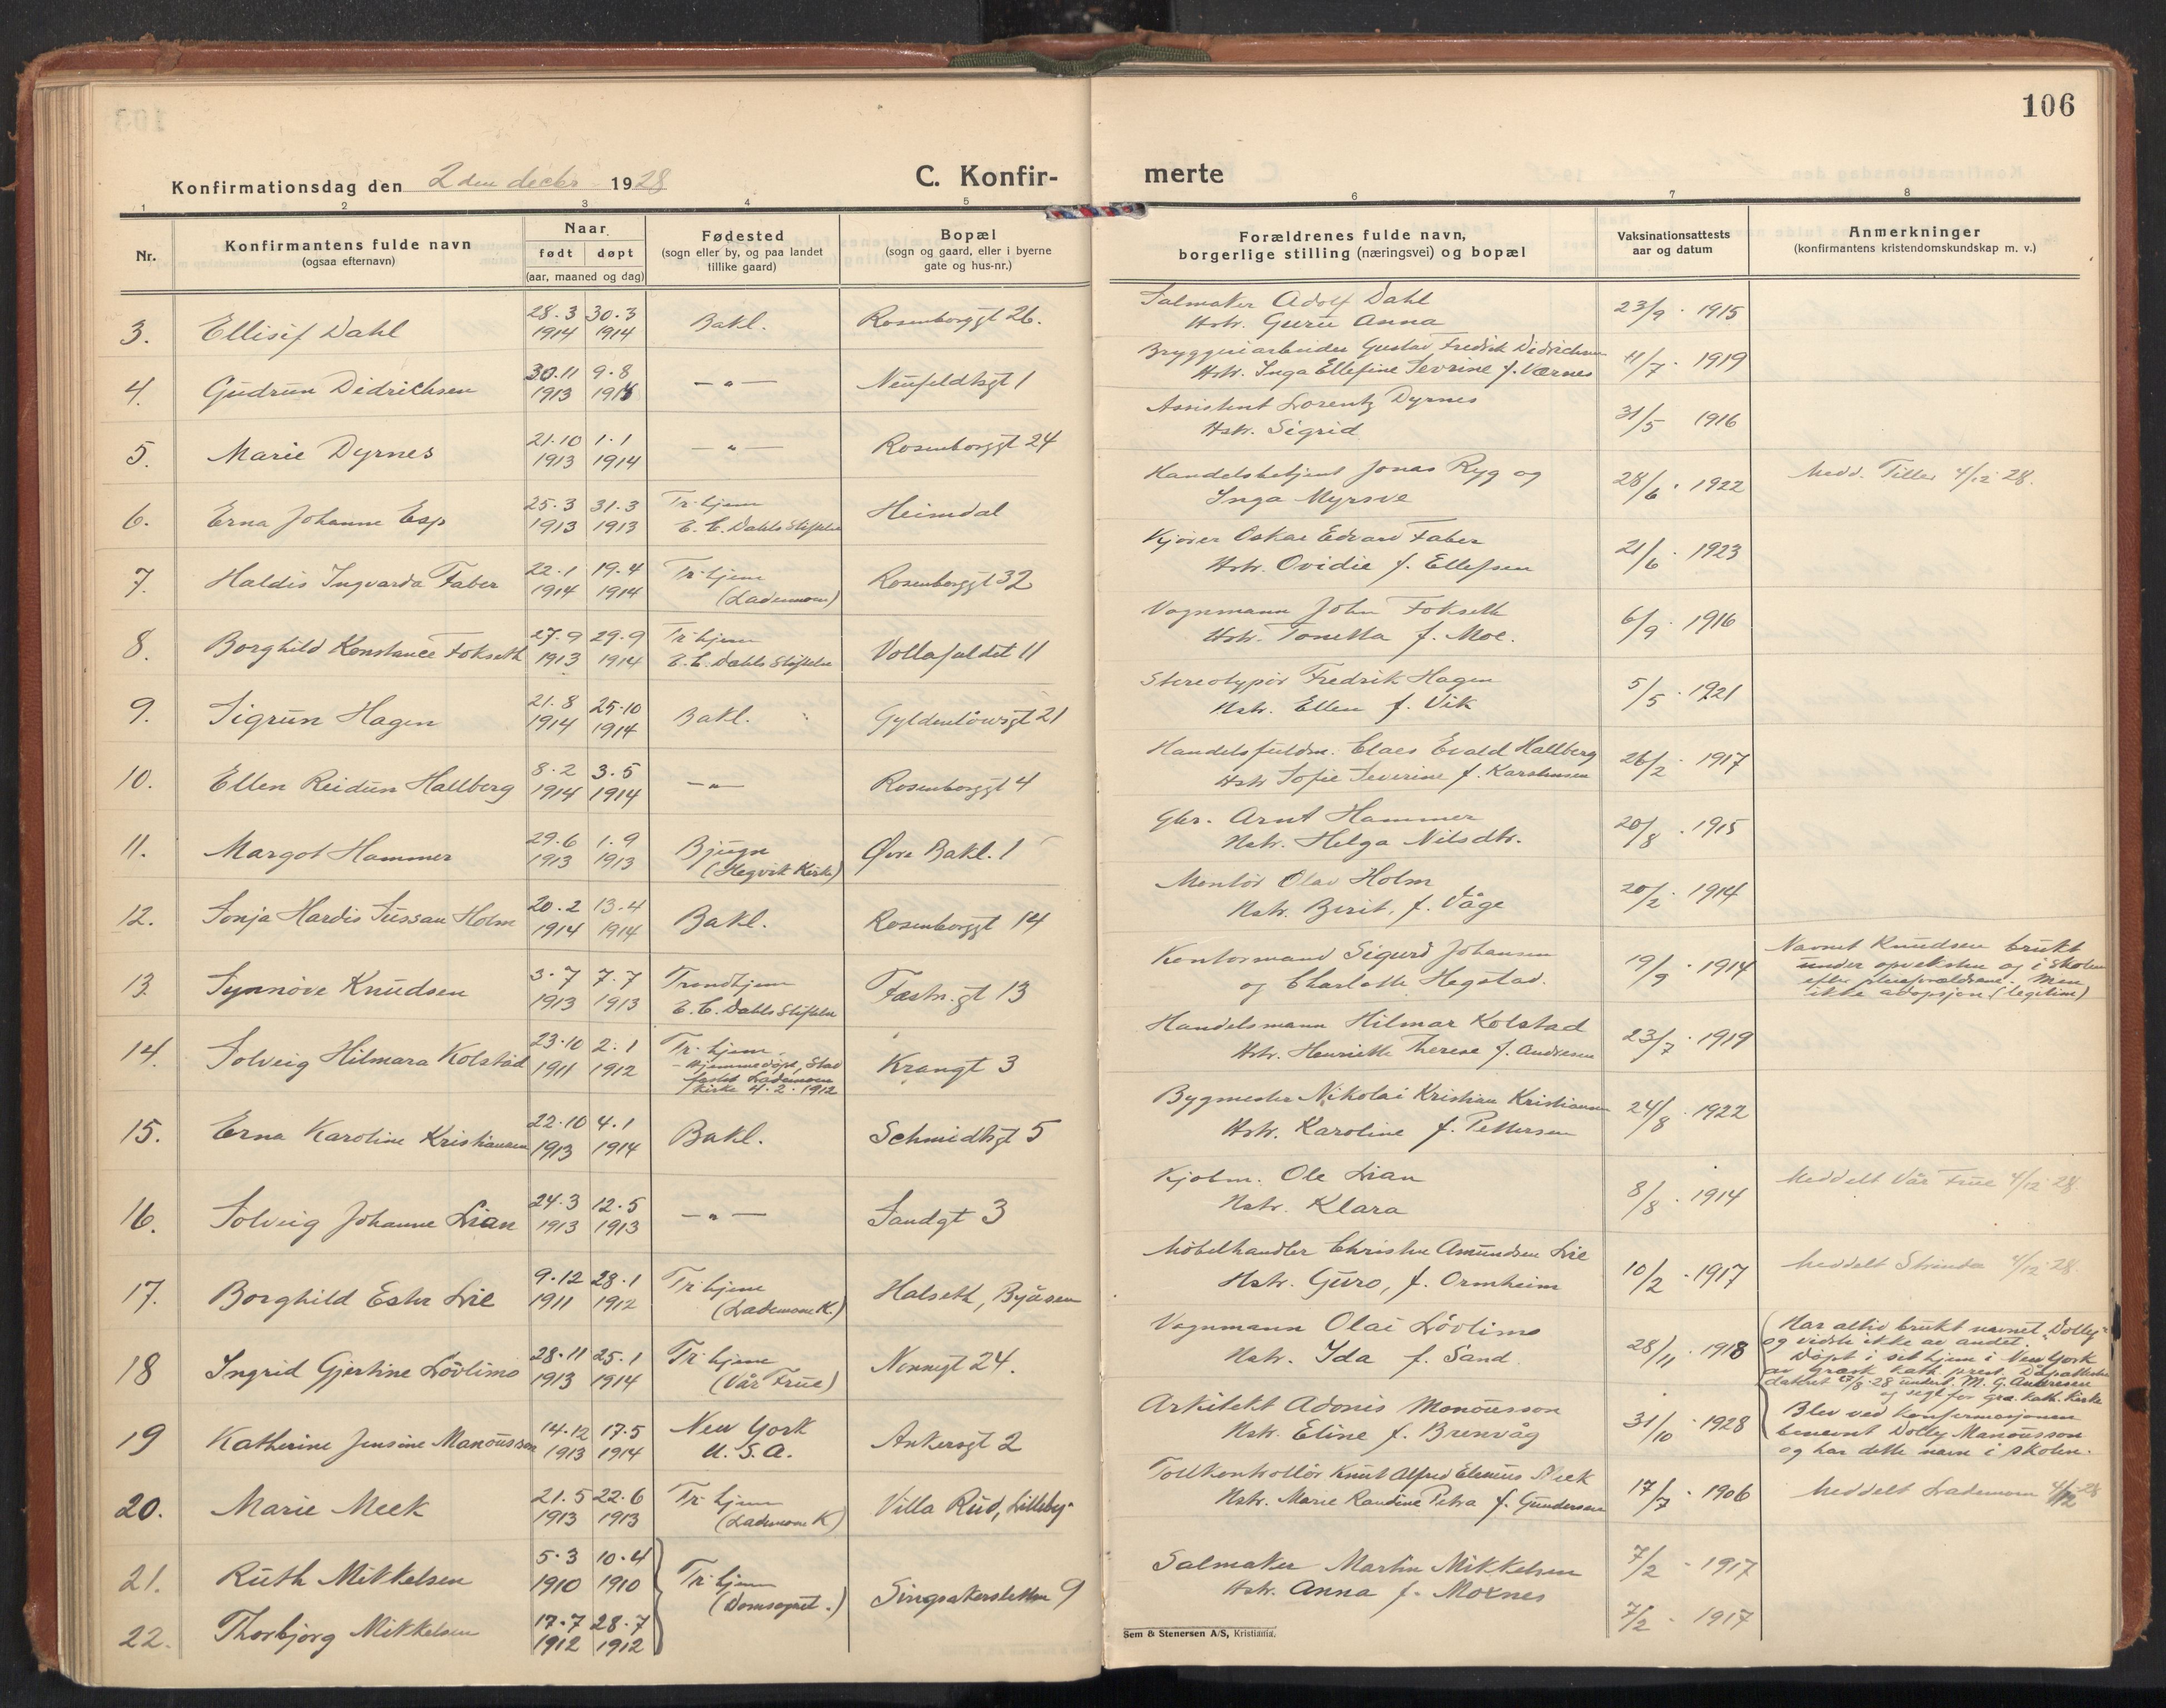 106
Konfirmationsdag den 2den decbr 1928
C. Konfir-
merte
1 2 3 4 5 6 7 8
Nr.
Konfirmantens fulde navn
(ogsaa efternavn)
Naar
født døpt
(aar, maaned og dag)
Fødested
(sogn eller by, og paa landet
tillike gaard)
Bopæl
(sogn og gaard, eller i byerne
gate og hus-nr.)
Forældrenes fulde navn,
borgerlige stilling (næringsvei) og bopæl
Vaksinationsattests
aar og datum
Anmerkninger
(konfirmantens kristendomskundskap m. v.)
3. Ellisif Dahl 28.3 1914 30.3 1914 Bakl. Rosenborggt 26.
Salmaker Adolf Dahl
Hstr. Guru Anna
23/9 · 1915
4. Gudrun Didrichsen 30.11 1913 9.8 Neufeldtsgt 1
Bryggeriarbeider Gustav Fredrik Didrichsen
Hstr. Inga Ellefine Sevrine f. Værnes
11/7 · 1919
5. Marie Dyrnes 21.10 1913 1.1 1914 — " — Rosenborggt 24
Assistent Lorentz Dyrnes
Hstr. Sigrid
31/5 1916
6. Erna Johanne Esp 25.3 1913 31.3 1913 Tr.hjem
E. C. Dahls Stiftelse Heimdal
Handelsbetjent Jonas Ryg og
Inga Myrsve
28/6 · 1922
Medd. Tiller 4/12 28.
7. Haldis Ingvarda Faber 22.1 1914 19.4 1914 Tr.hjem
(Lademoen) Rosenborggt 32
Kjører Oskar Edvard Faber
Hstr. Ovidie f. Ellefsen
21/6 · 1923
8. Borghild Konstance Fokseth 27.9 1913 29.9 1914 Tr.hjem
E. C. Dahls Stiftelse Vollafaldet 11
Vognmann John Fokseth
Hstr. Tonetta f. Moe.
6/9 · 1916
9. Sigrun Hagen 21.8 1914 25.10 1914 Bakl. Gyldenløwsgt 21
Stereotypør Fredrik Hagen
Hstr. Ellen f. Vik
5/5 · 1921
10. Ellen Reidun Hallberg 8.2 1914 3.5 1914 — " — Rosenborggt 4
Handelsfuldm. Claes Evald Hallberg
Hstr Sofie Severine f. Karstensen
26/2 · 1917
11. Margot Hammer 29.6 1913 1.9 1913 Bjugn
(Hegvik Kirke) Øvre Bakl. 1
Gbr. Arnt Hammer
Hstr. Helga Nilsdtr.
20/8 · 1915
12. Sonja Hardis Sussan Holm 20.2 1914 13.4 1914 Bakl. Rosenborggt 14
Montør Olav Holm
Hstr. Berit, f. Våge
20/2 · 1914
13. Synnöve Knudsen 3.7 1913 7.7 1913 Trondhjem
E. C. Dahls Stiftelse Fæstn.gt 13
Kontormand Sigurd Johansen
og Charlotte Hegstad.
19/9 · 1914
Navnet Knudsen brukt
under opveksten og i skolen
efter pleieforældrene. Men
ikke adopsjon (legitim)
14. Solveig Hilmara Kolstad 23.10 1911 2.1 1912 Tr.hjem
- Hjemmedöpt, Stad
festet Lademoen
Kirke 4.2.1912 Krangt 3
Handelsmann Hilmar Kolstad
Hstr. Henriette Therese f. Andresen
23/7 · 1919
15. Erna Karoline Kristiansen 22.10 1913 4.1 1914 Bakl. Schmidtsgt 5
Bygmester Nikolai Kristian Kristiansen
Hstr. Karoline f. Pettersen
24/8 · 1922
16. Solveig Johanne Lian 24.3 1913 12.5 1913 — " — Sandgt 3
Kjolm. Ole Lian
Hstr. Klara
8/8 · 1914
Meddelt Vår Frue 4/12 28
17. Borghild Ester Lie 9.12 1911 28.1 1912 Tr.hjem
(Lademoen K.) Halseth, Byåsen
Møbelhandler Christen Amundsen Lie
Hstr. Guro, f. Ormheim
10/2 · 1917
Meddelt Strinda 4/12 28.
18 Ingrid Gjertine Lövlimo 28.11 1913 25.1 1914 Tr.hjem
(Vår Frue) Nonnegt 24.
Vognmann Olai Lövlimo
Hstr. Ida f. Sand
28/11 · 1918
19 Katherine Jensine Manousson 14.12 1913 17.5 1914 New York
U. S. A. Ankersgt 2
Arkitekt Adonis Monousson
Hstr. Eline f. Brenvåg
31/10 · 1928
Har altid brukt navnet "Dolly"
og vidste ikke av andet.
Döpt i sit hjem i New York
av græsk kath. prest. Dåpsattesten
datert 27/8 28 undert. M. G. Andresen
og segl for græ. kath. kirke
Blev ved konfirmasjonen
benevnt Dolly Manousson
og har dette navn i skolen.
20. Marie Meek 21.5 1913 22.6 1913 Tr.hjem
(Lademoen K) Villa Rud, Lilleby
Tollkontrollør Knut Alfred Elenius Meek
Hstr. Marie Randine Petra f. Gundersen
17/7 · 1906
Meddelt Lademoen 4/12 28
21. Ruth Mikkelsen 5.3 1910 10.4 1910 Tr.hjem
(Domsognet.) Singsakersletten 9
Salmaker Martin Mikkelsen
Hstr. Anna f. Moxnes
7/2 · 1917
22. Thorbjørg Mikkelsen 17.7 1912 28.7 1912
7/2 · 1917
Sem & Stenersen A/S, Kristiania.